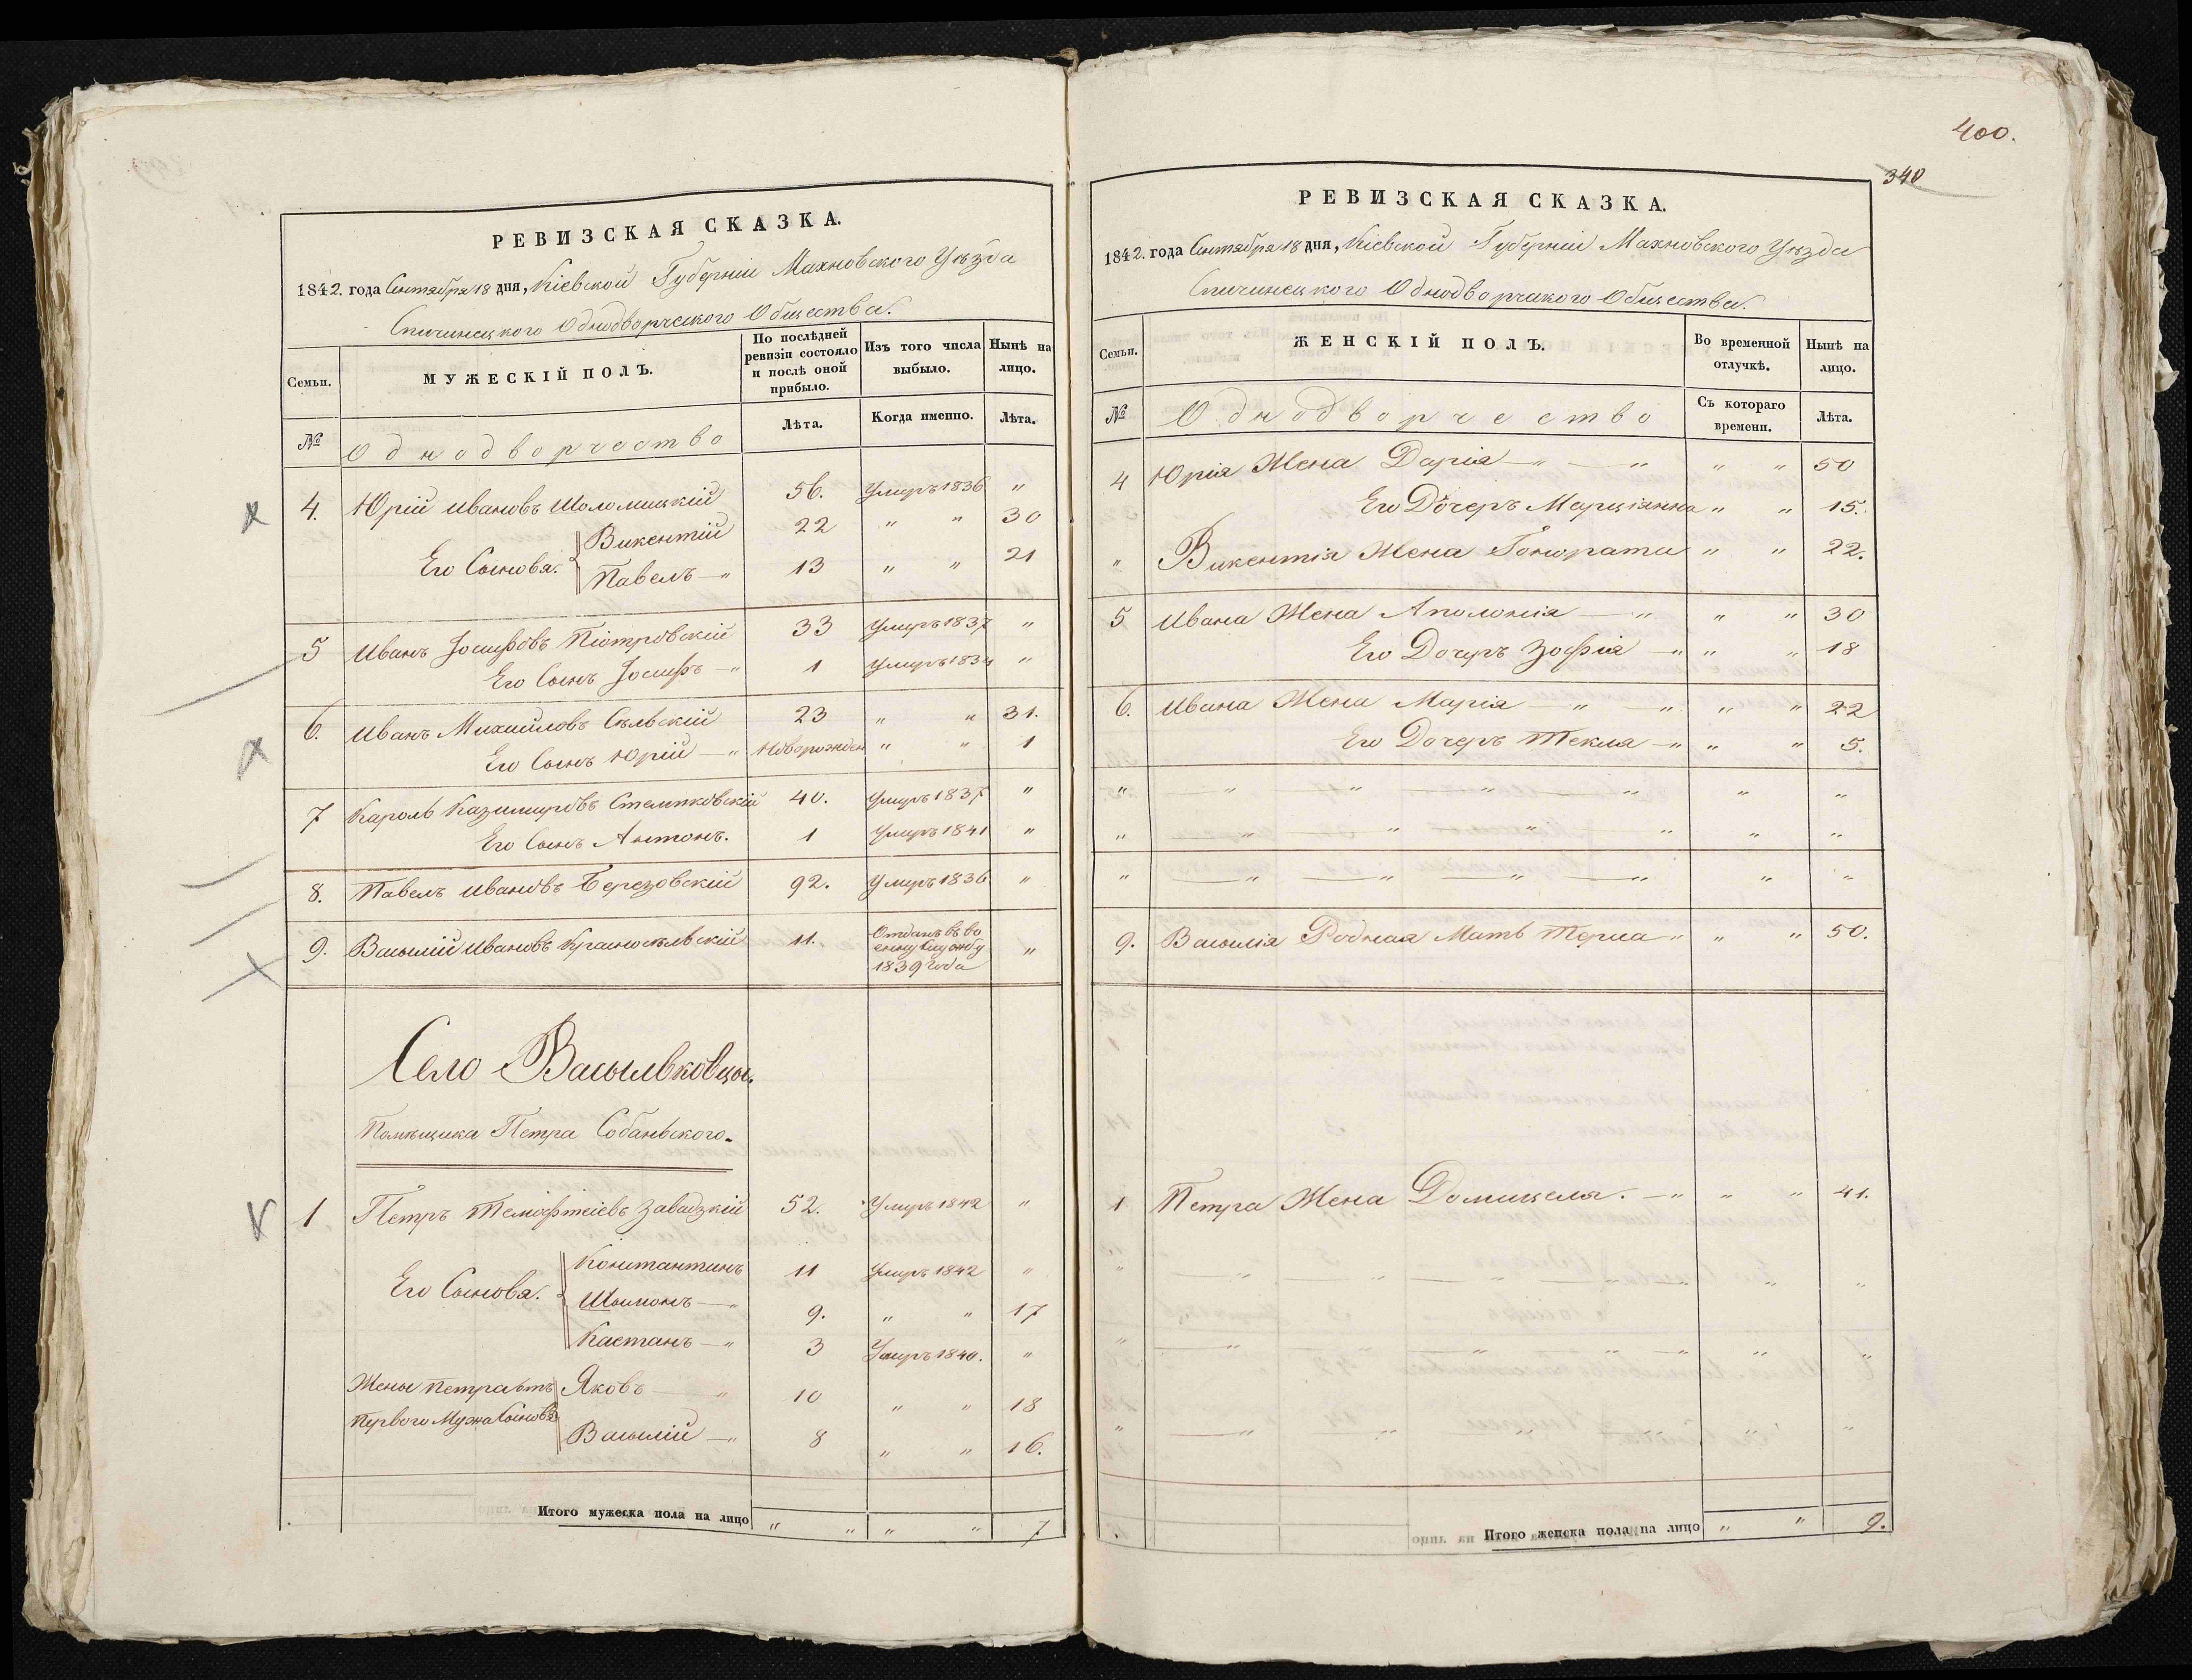 РЕВИЗСКАЯ СКАЗКА.
1842. года Сентября 18 дня, Кіевской Губерніи Махновского Уѣзда
Спичинецкого Однодворческого Общества.
Семьи.
МУЖЕСКІЙ ПОЛЪ.
По послѣдней ревизіи состояло и послѣ оной прибыло.
Изъ того числа выбыло.
Нынѣ на лицо.
№
Однодворчество
Лѣта.
Когда именно.
Лѣта.
4. Юрій Ивановъ Шоломицкій 56. Умеръ 1836 "
Его Сынова. Викентій 22 " " 30
Павелъ — " 13 " " 21
5 Иванъ Іосифовъ Піотровскій 33 Умеръ 1837 "
Его Сынъ Іосифъ — " 1 Умеръ 1834 "
6. Иванъ Михайловъ Сѣльскій 23 " " 31.
Его Сынъ Юрій — " Новорожден " " 1
7 Кароль Казимировъ Стемпковскій 40. Умеръ 1837 "
Его Сынъ Антонъ. 1 Умеръ 1841 "
8. Павелъ Ивановъ Березовскій 92. Умеръ 1836 "
9. Васылій Ивановъ Красносѣльскій 11. Отданъ въ во
енну службу "
1839 года
Село Васыльковцы.
Помѣщика Петра Собаньского.
1 Петръ Темофтеіевъ Завадзкій 52. Умеръ 1842 "
Его Сынова. Константинъ 11 Умеръ 1842 "
Шымонъ — " 9. " " 17
Каетанъ — " 3 Умеръ 1840. "
Жены Петра отъ Яковъ — " 10 " " 18
Первого Мужа Сынова
Васылій — " 8 " " 16.
Итого мужеска пола на лицо " " " " 7
400.
340
РЕВИЗСКАЯ СКАЗКА.
1842. года Сентября 18 дня, Кіевской Губерніи Махновского Уѣзда
Спичинецкого Однодворческого Общества.
Семьи.
ЖЕНСКІЙ ПОЛЪ.
Во временной отлучкѣ.
Нынѣ на лицо.
№
Однодворчество
Съ котораго времени.
Лѣта.
4 Юрія Жена Дарія — " — " " " 50
Его Дочеръ Марціянна " " 15.
" Викентія Жена Гонората " " 22.
5 Ивана Жена Аполонія — " " " 30
Его Дочеръ Зофія — " " " 18
6. Ивана Жена Марія — " — " " " 22
Его Дочеръ Текля — " " " 5.
" " — " — " — " " "
" " — " — " — " " "
" — " — " — " — " " "
9. Васылія Родная Мать " " " 50.
1 Петра Жена Домицеля. — " " " 41.
" — " — " — " — " " "
" — " — " — " — " " "
" — " — " — " — " " "
Итого женска пола на лицо " " 9.